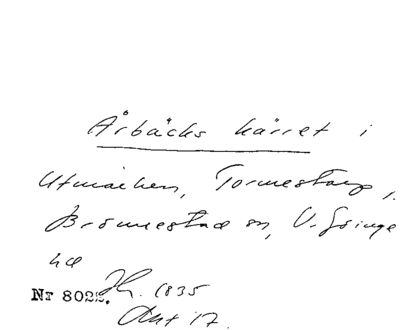 Årbäcks kärret i
Utmarken, Tormestorp,
Brönnestad sn, V. Göinge
hd
Nr 8022. 1835
Akt 17.